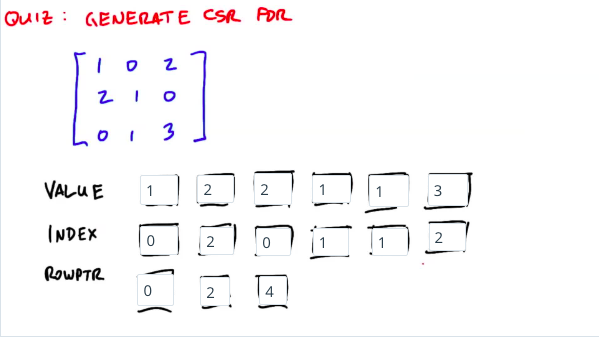 QUIZ: GENERATE CSR FOR
1 0 2
2 1 0
0 1 3
VALUE 1 2 2 1 1 3
INDEX 0 2 0 1 1 2
ROWPTR 0 2 4